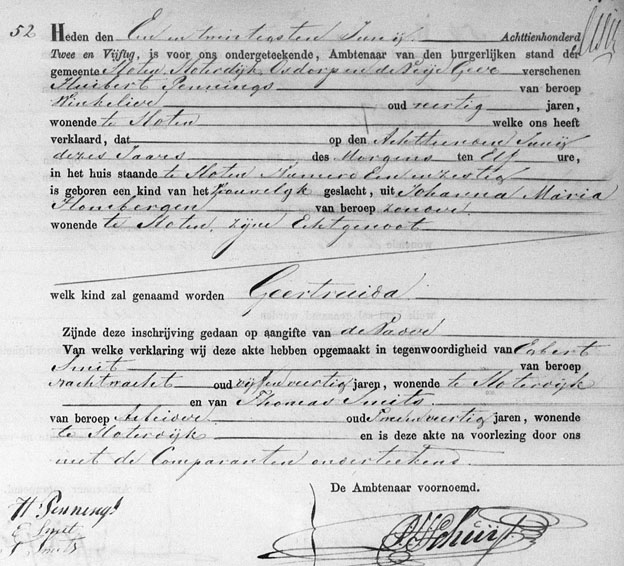 52 Heden den Een en twintigsten Junij Achttienhonderd
Twee en Vijftig, is voor ons ondergeteekende, Ambtenaar van den burgerlijken stand der
gemeente Sloten Sloterdijk Osdorp en de Vrije Geer verschenen
Huibert Pennings van beroep
Winkelier oud veertig jaren,
wonende te Sloten welke ons heeft
verklaard, dat op den Achttienden Junij
dezes Jaars des Morgens ten Elf ure,
in het huis staande te Sloten Numero Een en zestig
is geboren een kind van het Vrouwelijk geslacht, uit Johanna Maria
Hombergen van beroep zonder
wonende te Sloten, zijne Echtgenoot
welk kind zal genaamd worden Geertruida
Zijnde deze inschrijving gedaan op aangifte van de Vader
Van welke verklaring wij deze akte hebben opgemaakt in tegenwoordigheid van Egbert
Smit van beroep
nachtwacht oud vijf en veertig jaren, wonende te Sloterdijk
en van Thomas Smits
van beroep oud Twee en veertig jaren, wonende
te Sloterdijk en is deze akte na voorlezing door ons
met de Comparanten onderteekend
De Ambtenaar voornoemd.
H: Pennings
E Smit
T Smits